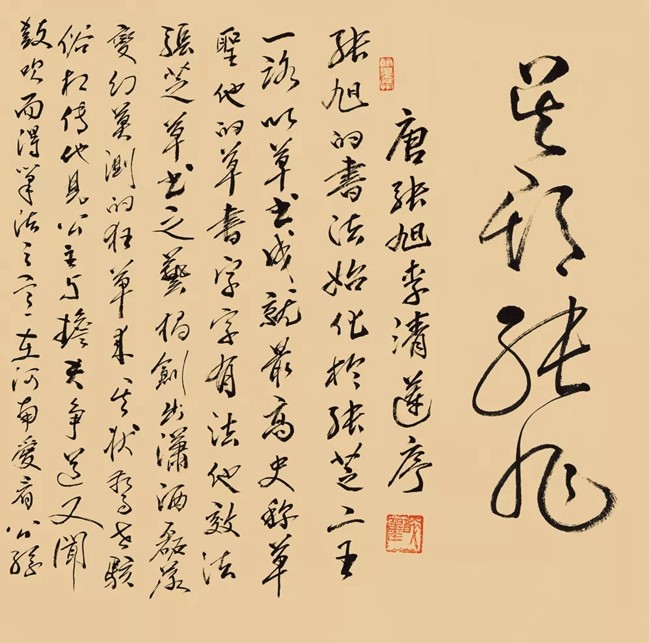 吴郡張旭
唐張旭李清蓮序
張旭的書法始化於張芝二王
一路以草书成就最高史称草
聖他的草書字字有法他效法
張芝草书之藝獨創出瀟洒磊落
變幻莫測的狂草来其狀驚世駭
俗相傳他見公主与擔夫争道又聞
鼓吹而得筆法之意在河南愛看公孫